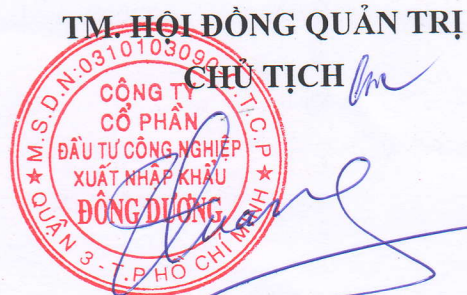 TM. HỘI ĐỒNG QUẢN TRỊ
CHỦ TỊCH
M.S.D.N:0310103090 - C.T.C.P
CÔNG TY
CỔ PHẦN
ĐẦU TƯ CÔNG NGHIỆP
XUẤT NHẬP KHẨU
ĐÔNG DƯƠNG
QUẬN 3 - T.P HỒ CHÍ MINH